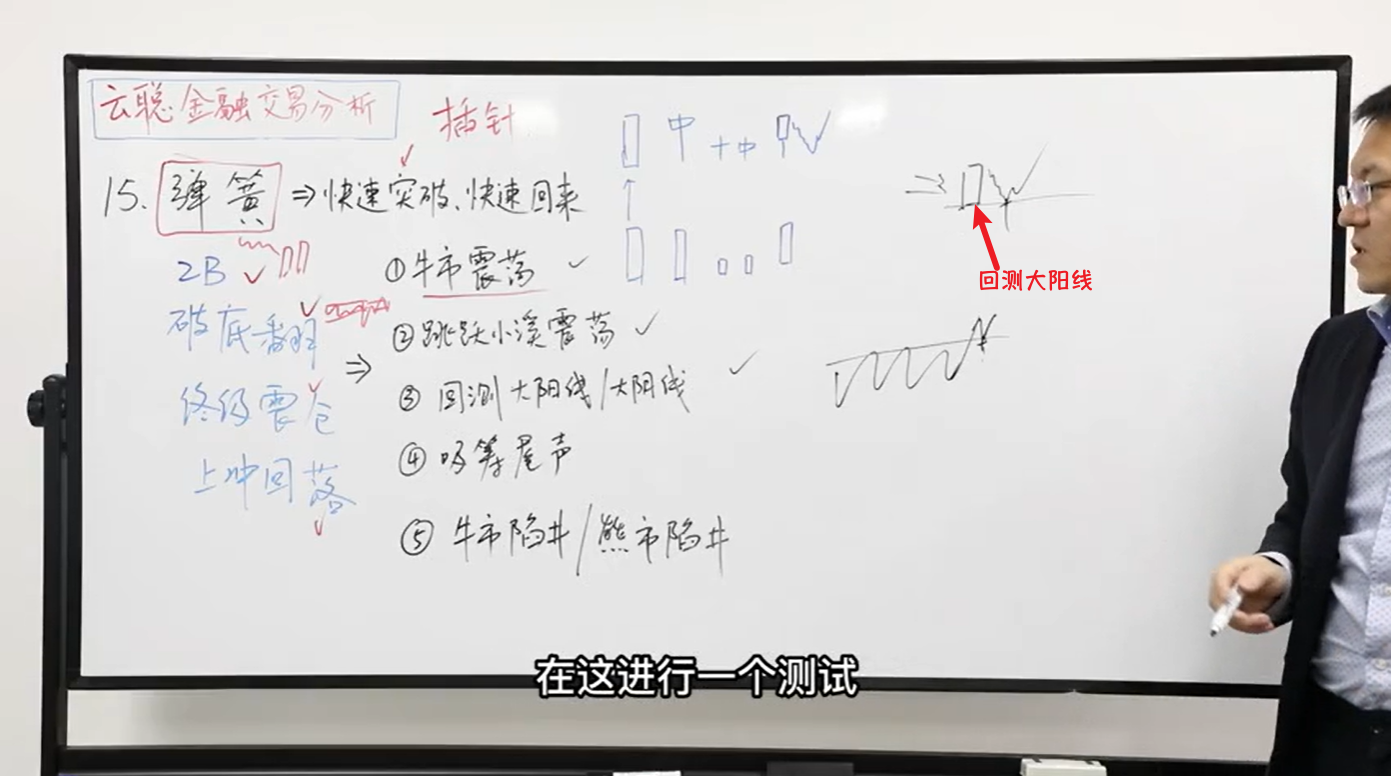 云聪金融交易分析
插针
15. 弹簧 ⇒ 快速突破、快速回来
2B
破底翻
终级震仓
上冲回落
① 牛市震荡
② 跳跃小溪震荡
③ 回测大阳线/大阳线
④ 吸筹尾声
⑤ 牛市陷井/熊市陷井
回测大阳线
在这进行一个测试